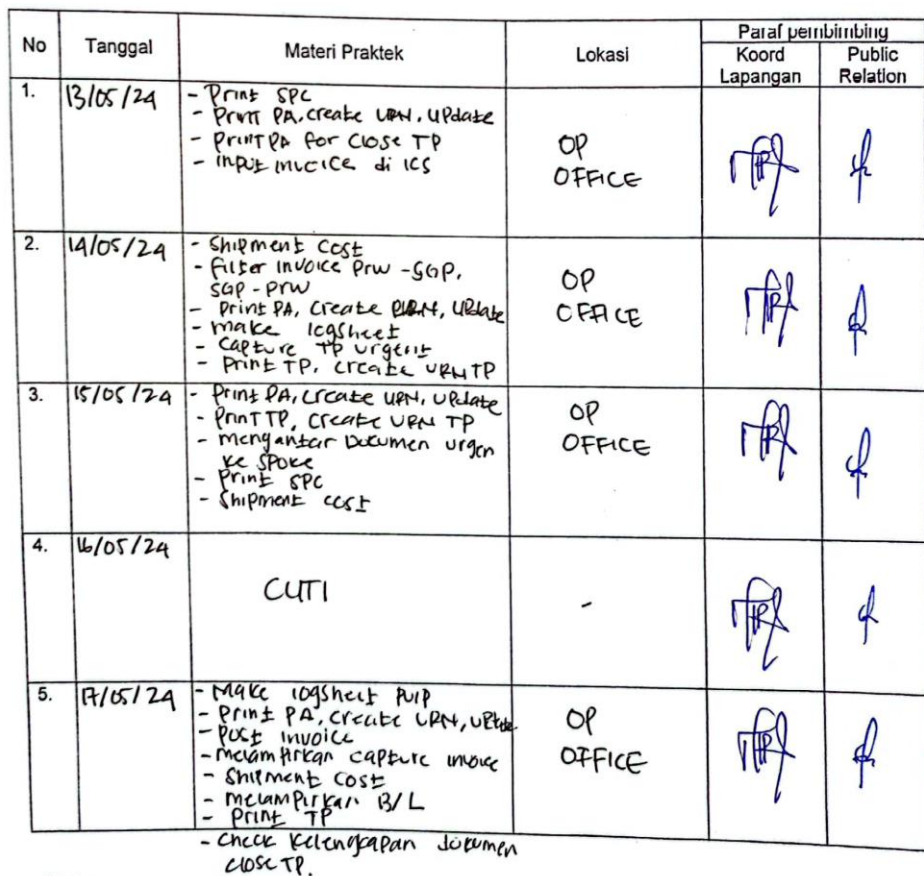 No Tanggal Materi Praktek Lokasi Paraf pembimbing
Koord Lapangan Public Relation
1. 13/05/24
- Print SPC
- Print PA, create URN, UPdate
- Print PA for Close TP
- Input invoice di ICS
OP
OFFICE
2. 14/05/24
- Shipment Cost
- Filter Invoice Prw - SGP,
SGP - Prw
- Print PA, Create URN, UPdate
- make logsheet
- Capture TP urgent
- Print TP, create URN TP
OP
OFFICE
3. 15/05/24
- Print PA, Create URN, UPdate
- Print TP, Create URN TP
- mengantar Dokumen urgen
ke SPoke
- Print SPC
- Shipment cost
OP
OFFICE
4. 16/05/24
CUTI
-
5. 17/05/24
- Make logsheet PulP
- Print PA, Create URN, UPdate
- Post Invoice
- melampirkan capture invoice
- Shipment Cost
- melampirkan B/L
- Print TP
- Check Kelengkapan dokumen
close TP.
OP
OFFICE